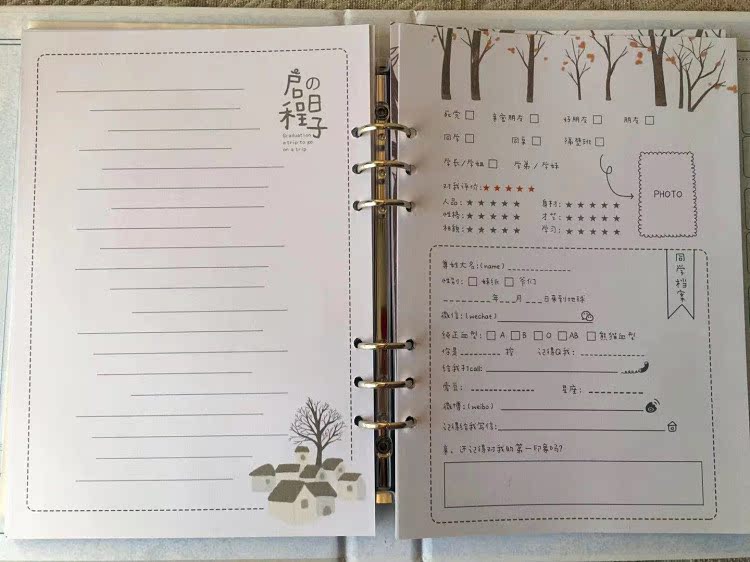 启の
程日
子
Graduation
a trip to go
on a trip
死党 亲密朋友 好朋友 朋友
同学 同桌 隔壁班
学长/学姐 学弟/学妹
PHOTO
对我评价:★★★★★
人品:★★★★★ 身材:★★★★★
性格:★★★★★ 才艺:★★★★★
相貌:★★★★★ 学习:★★★★★
同学档案
尊姓大名:(name)
性别: 妹纸 爷们
年 月 日来到地球
微信:(wechat)
纯正血型: A B O AB 熊猫血型
你是 控 记得Q我:
给我打call:
爱豆: 星座:
微博:(weibo)
记得给我写信:
亲,还记得对我的第一印象吗?